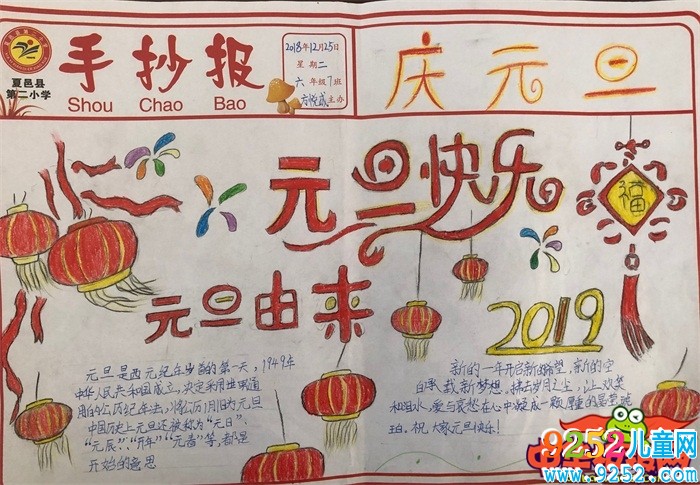 夏邑县
第二小学
手抄报
Shou Chao Bao
2018年12月25日
星期二
六年级7班
主办
庆元旦
元旦快乐
福
元旦由来
2019
元旦是西元纪年岁首的第一天,1949年
中华人民共和国成立,决定采用世界通
用的公历纪年法,将公历1月1日为元旦
中国历史上元旦还被称为“元日”、
“元辰”、“开年”“元春”等,都是
开始的意思
新的一年开启新的希望,新的空
白承载新梦想,拂去岁月之尘,让欢笑
和泪水,爱与哀愁在心中凝成一颗厚重的晶莹琥
珀。祝大家元旦快乐!
9252儿童网
www.9252.com